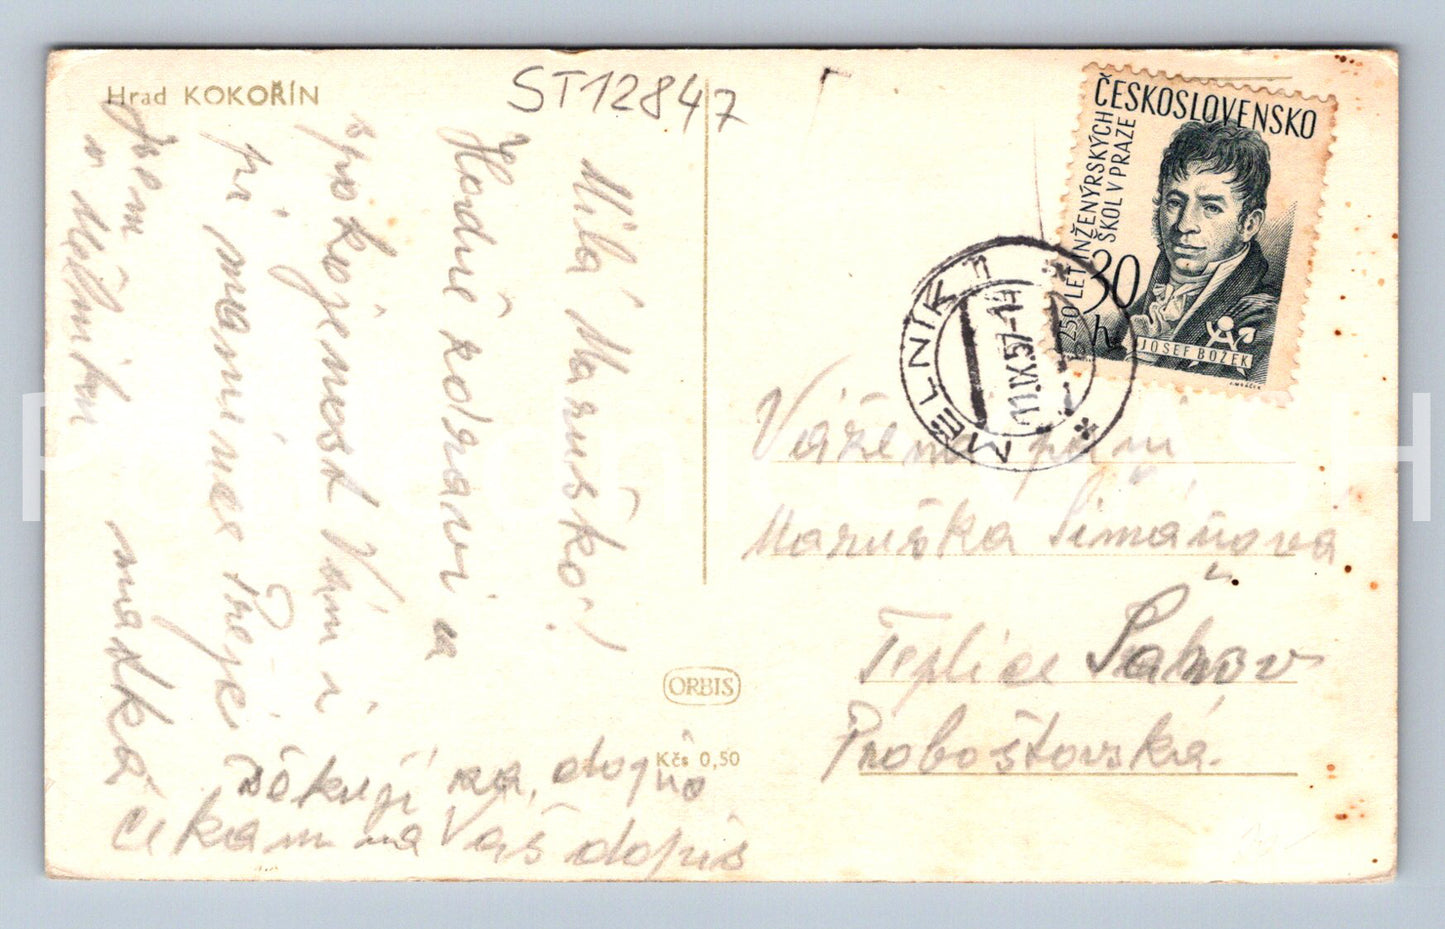 Hrad KOKOŘÍN
ST12847
Milá Maruško!
Hodně zdraví a
spokojenosti Vám i
při mamince Přeje
Jsem
v Mělníku matka
Děkuji za dopis
čekám na Váš dopis
ORBIS
Kčs 0,50
ČESKOSLOVENSKO
250 LET INŽENÝRSKÝCH
ŠKOL V PRAZE
30 h
JOSEF BOŽEK
MĚLNÍK 1
11.IX.57-14
Vážená paní
Maruška Šimáňová
Teplice Šanov
Proboštovská.